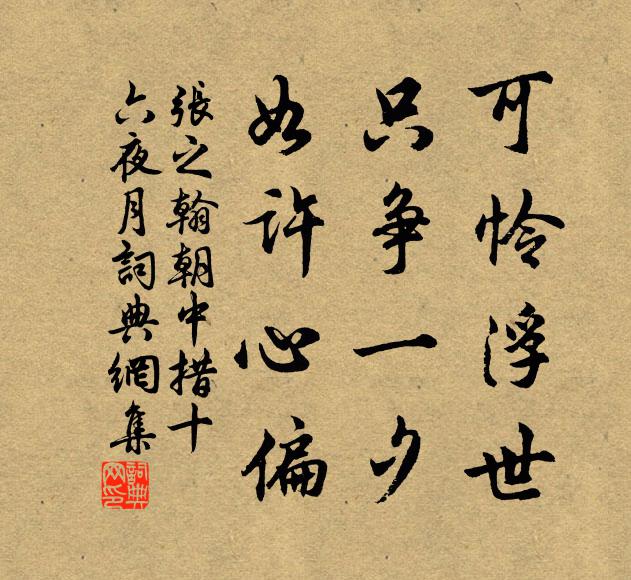 可怜浮世
只争一夕
如许心偏
張之翰朝中措十
六夜月詞典網集
詞典
网印